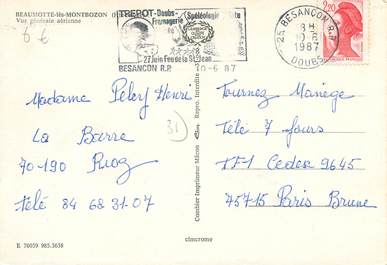 BEAUMOTTE-lès-MONTBOZON
Vue générale aérienne
6 €
TREPOT-Doubs-
Fromagerie
Spéléologie
27 Juin Feu de la St Jean
BESANCON R.P. 10-6-87
25 BESANCON R.P.
8H
10-6
1987
DOUBS
2,20
Madame Peley Henri
La Barre
70-190 Rioz
Télé 84 68 31.07
31
Combier Imprimeur Mâcon
Repro. Interdite
Tournez Manège
Télé 7 Jours
TF1 Cedex 9645
75715 Paris Brune
E 70059 985.3638
cimcrome